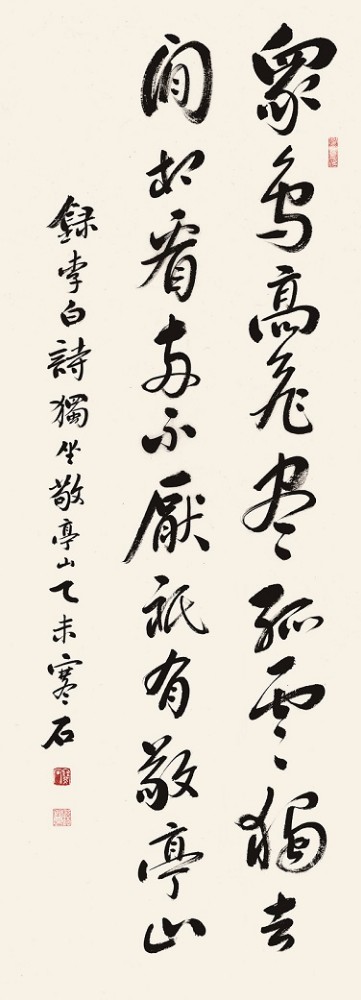 眾鳥高飛尽孤雲獨去
閒相看兩不厭祗有敬亭山
錄李白詩獨坐敬亭山乙未寒石